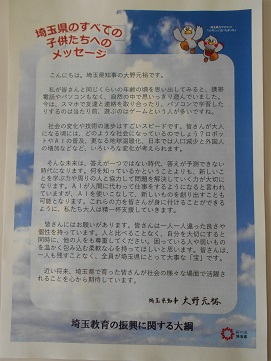 埼玉県のすべての
子供たちへの
メッセージ
こんにちは。埼玉県知事の大野元裕です。
私が皆さんと同じくらいの年齢の頃を思い出してみると、携帯
電話やパソコンもなく、自然の中で思いっきり遊んでいました。
今は、スマホで友達と連絡を取り合ったり、パソコンで学習した
りするのは当たり前、遊ぶのはゲームという人が多いですね。
社会の文化や技術の進歩はすごいスピードです。皆さんが大人
になる頃には、どのような社会になっているのでしょう？ロボッ
トやAIの普及、更なる地球温暖化、日本では人口減少と外国人
の増加などなど、いろいろな変化が考えられます。
そんな未来は、答えが一つではない時代、答えが予測できない
時代になります。何を知っているかということよりも、新しいこ
とを学ぶ力や周りの人と協力して問題を解決していく力が大切に
なります。AIが人間に代わって仕事をするようになると言われ
ていますが、AIを使いこなして、新しいものを創り出すことも
可能となります。これらの力を皆さんが身に付けることができる
ように、私たち大人は精一杯支援していきます。
皆さんにはお願いがあります。皆さんは一人一人違った良さや
個性を持っています。人と比べることなく、自分を大切にすると
同時に、他の人をも尊重してください。困っている人や弱いもの
を温かく包み込む柔軟な心を持ってほしいと思います。皆さんは、
一人も残すことなく、全員が埼玉県にとって大事な「宝」です。
近い将来、埼玉県で育った皆さんが社会の様々な場面で活躍さ
れることを心から期待しています。
埼玉県知事 大野元裕
埼玉教育の振興に関する大綱